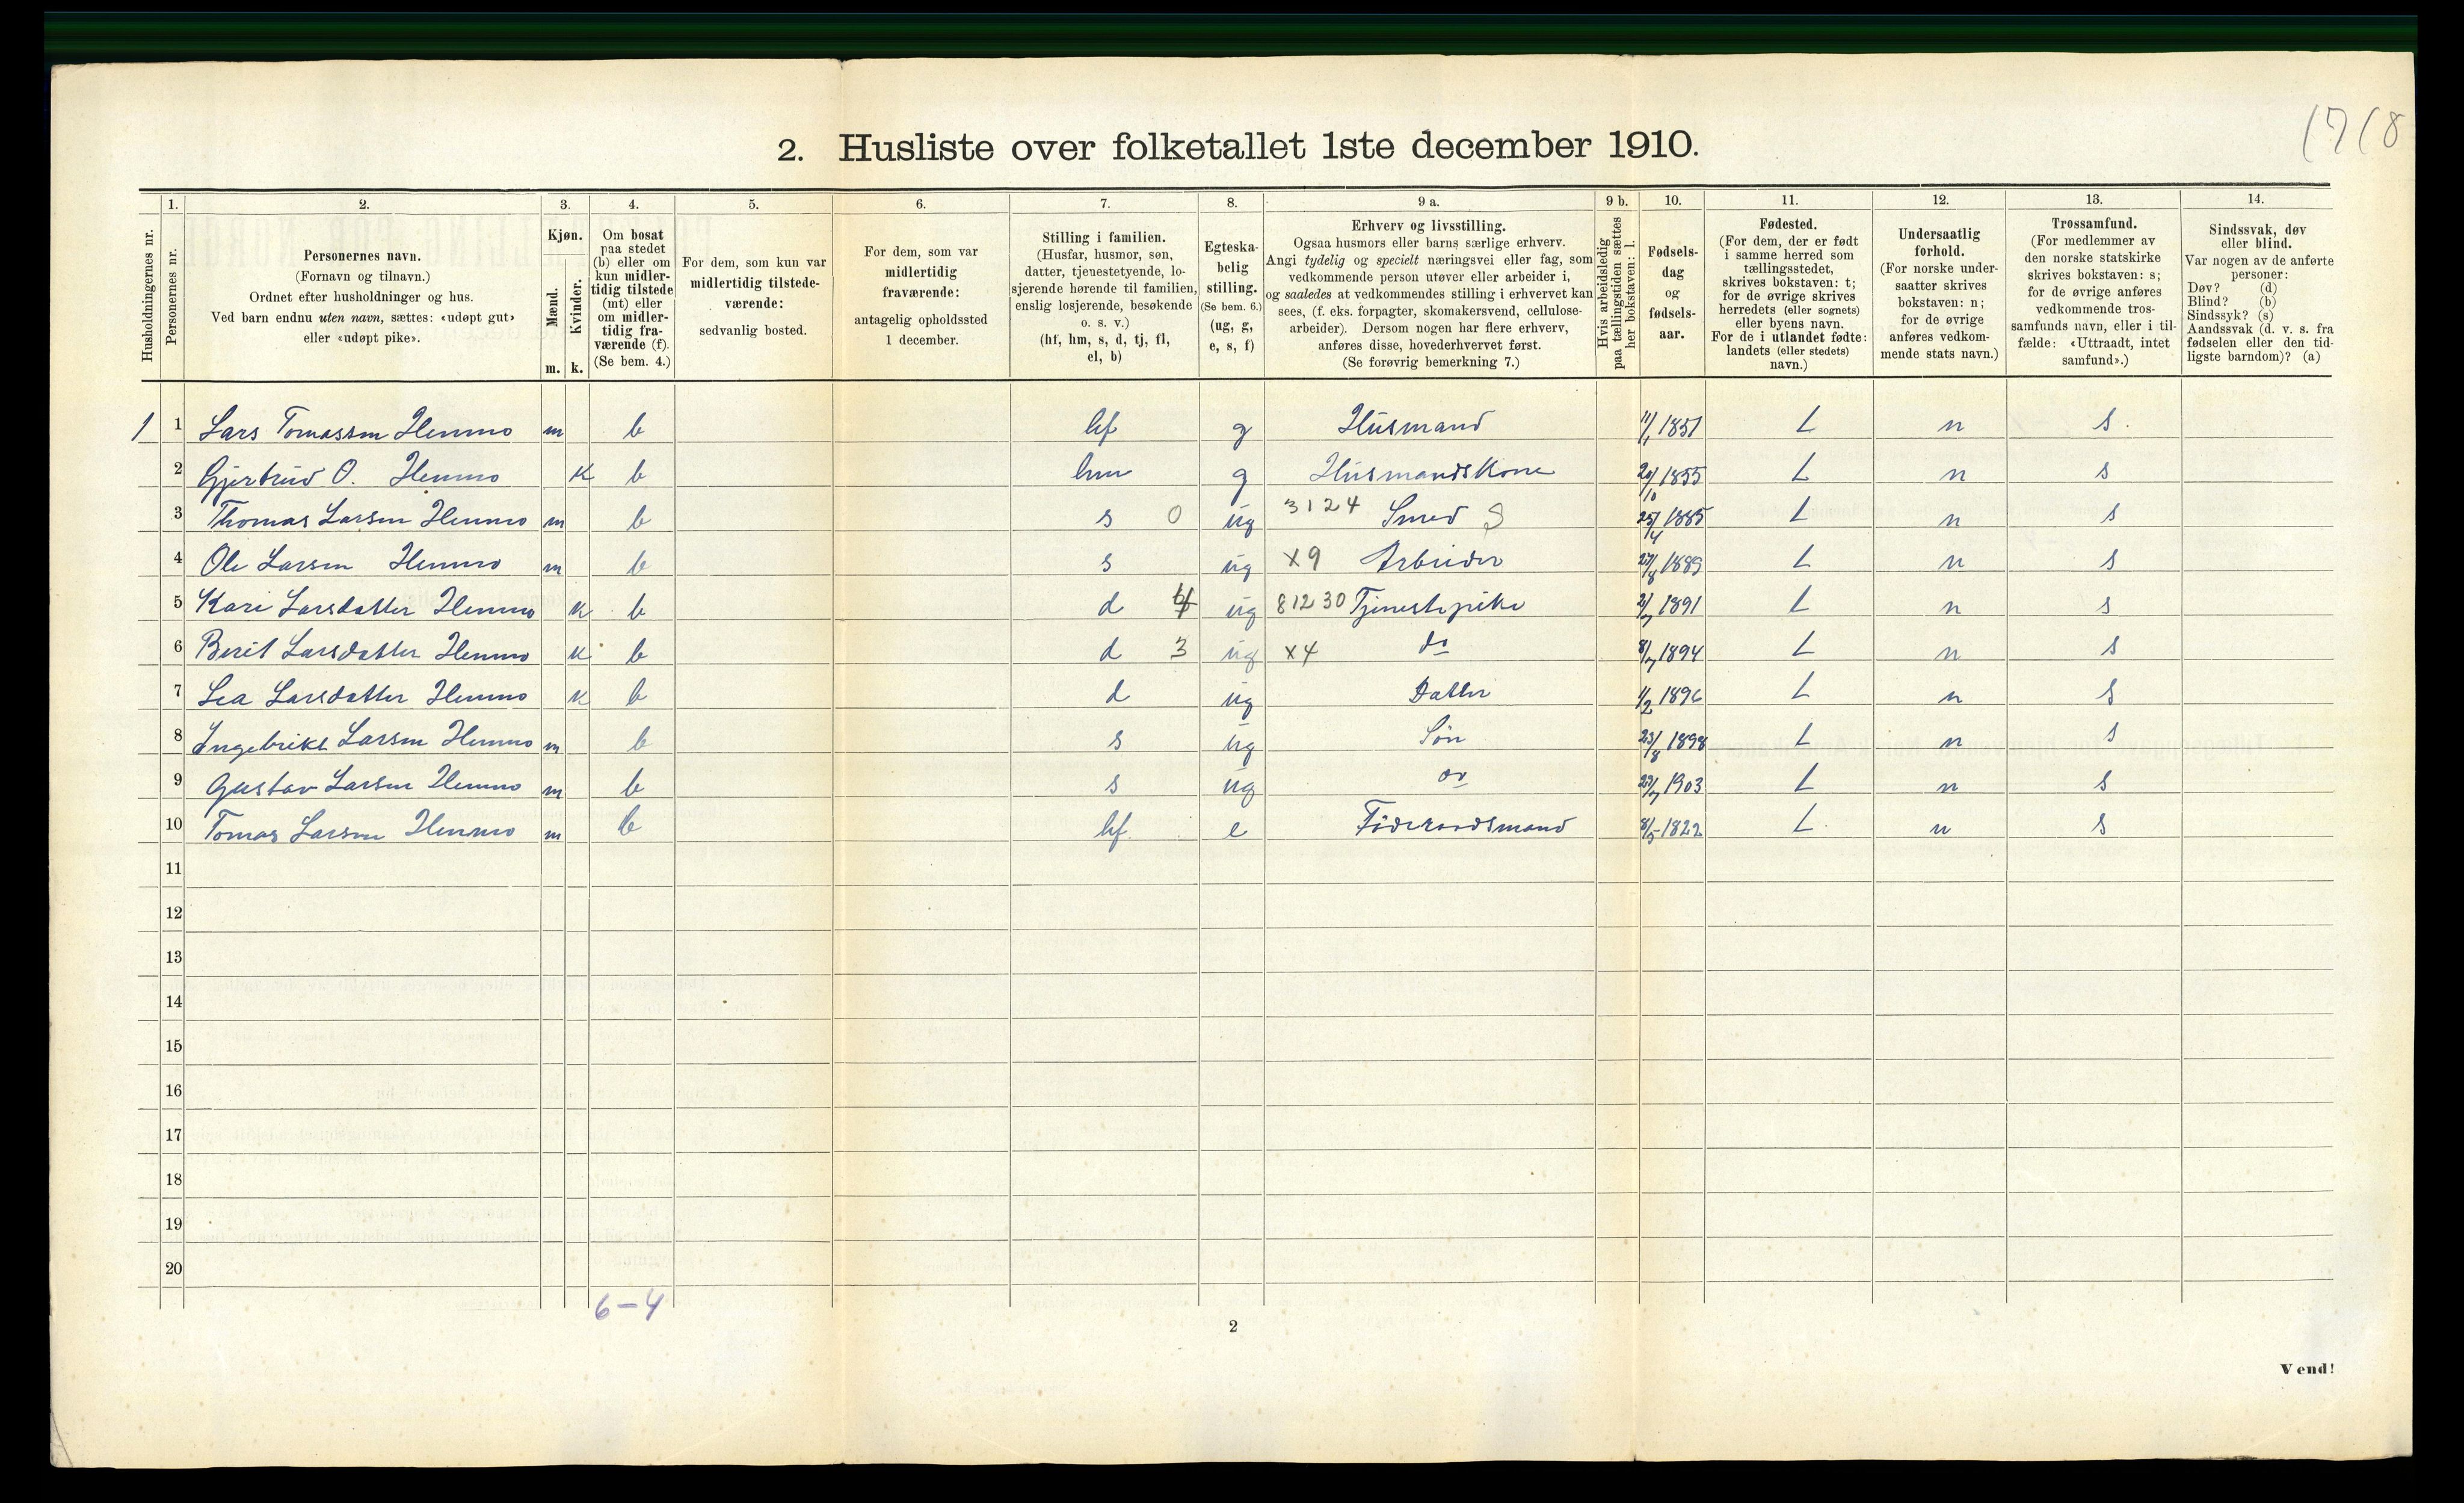 (7(8
2. Husliste over folketallet 1ste december 1910.
Husholdningernes nr.
1.
Personernes nr.
2.
Personernes navn.
(Fornavn og tilnavn.)
Ordnet efter husholdninger og hus.
Ved barn endnu uten navn, sættes: «udøpt gut»
eller «udøpt pike».
3.
Kjøn.
Mænd.
Kvinder.
m. k.
4.
Om bosat
paa stedet
(b) eller om
kun midler-
tidig tilstede
(mt) eller
om midler-
tidig fra-
værende (f).
(Se bem. 4.)
5.
For dem, som kun var
midlertidig tilstede-
værende:
sedvanlig bosted.
6.
For dem, som var
midlertidig
fraværende:
antagelig opholdssted
1 december.
7.
Stilling i familien.
(Husfar, husmor, søn,
datter, tjenestetyende, lo-
sjerende hørende til familien,
enslig losjerende, besøkende
o. s. v.)
(hf, hm, s, d, tj, fl,
el, b)
8.
Egteska-
belig
stilling.
(Se bem. 6.)
(ug, g,
e, s, f)
9 a.
Erhverv og livsstilling.
Ogsaa husmors eller barns særlige erhverv.
Angi tydelig og specielt næringsvei eller fag, som
vedkommende person utøver eller arbeider i,
og saaledes at vedkommendes stilling i erhvervet kan
sees, (f. eks. forpagter, skomakersvend, cellulose-
arbeider). Dersom nogen har flere erhverv,
anføres disse, hovederhvervet først.
(Se forøvrig bemerkning 7.)
9 b.
Hvis arbeidsledig
paa tællingstiden sættes
her bokstaven: l.
10.
Fødsels-
dag
og
fødsels-
aar.
11.
Fødested.
(For dem, der er født
i samme herred som
tællingsstedet,
skrives bokstaven: t;
for de øvrige skrives
herredets (eller sognets)
eller byens navn.
For de i utlandet fødte:
landets (eller stedets)
navn.)
12.
Undersaatlig
forhold.
(For norske under-
saatter skrives
bokstaven: n;
for de øvrige
anføres vedkom-
mende stats navn.)
13.
Trossamfund.
(For medlemmer av
den norske statskirke
skrives bokstaven: s;
for de øvrige anføres
vedkommende tros-
samfunds navn, eller i til-
fælde: «Uttraadt, intet
samfund».)
14.
Sindssvak, døv
eller blind.
Var nogen av de anførte
personer:
Døv? (d)
Blind? (b)
Sindssyk? (s)
Aandssvak (d. v. s. fra
fødselen eller den tid-
ligste barndom)? (a)
1 1 Lars Tomassen Hemmo m b hf g Husmand 11/1 1851 t n s
2 Gjertrud O. Hemmo k b hm g Husmandskone 20/10 1855 t n s
3 Thomas Larsen Hemmo m b s 0 ug 3124 Smed S 25/4 1885 t n s
4 Ole Larsen Hemmo m b s ug x9 Arbeider 27/8 1889 t n s
5 Kari Larsdatter Hemmo k b d ug 81230 Tjenestepike 2/7 1891 t n s
6 Berit Larsdatter Hemmo k b d 3 ug x4 do 8/7 1894 t n s
7 Lea Larsdatter Hemmo k b d ug Datter 1/2 1896 t n s
8 Ingebrikt Larsen Hemmo m b s ug Søn 23/8 1898 t n s
9 Gustav Larsen Hemmo m b s ug do 27/7 1903 t n s
10 Tomas Larsen Hemmo m b hf e Føderaadsmand 8/5 1822 t n s
11
12
13
14
15
16
17
18
19
20
6-4
2
Vend!